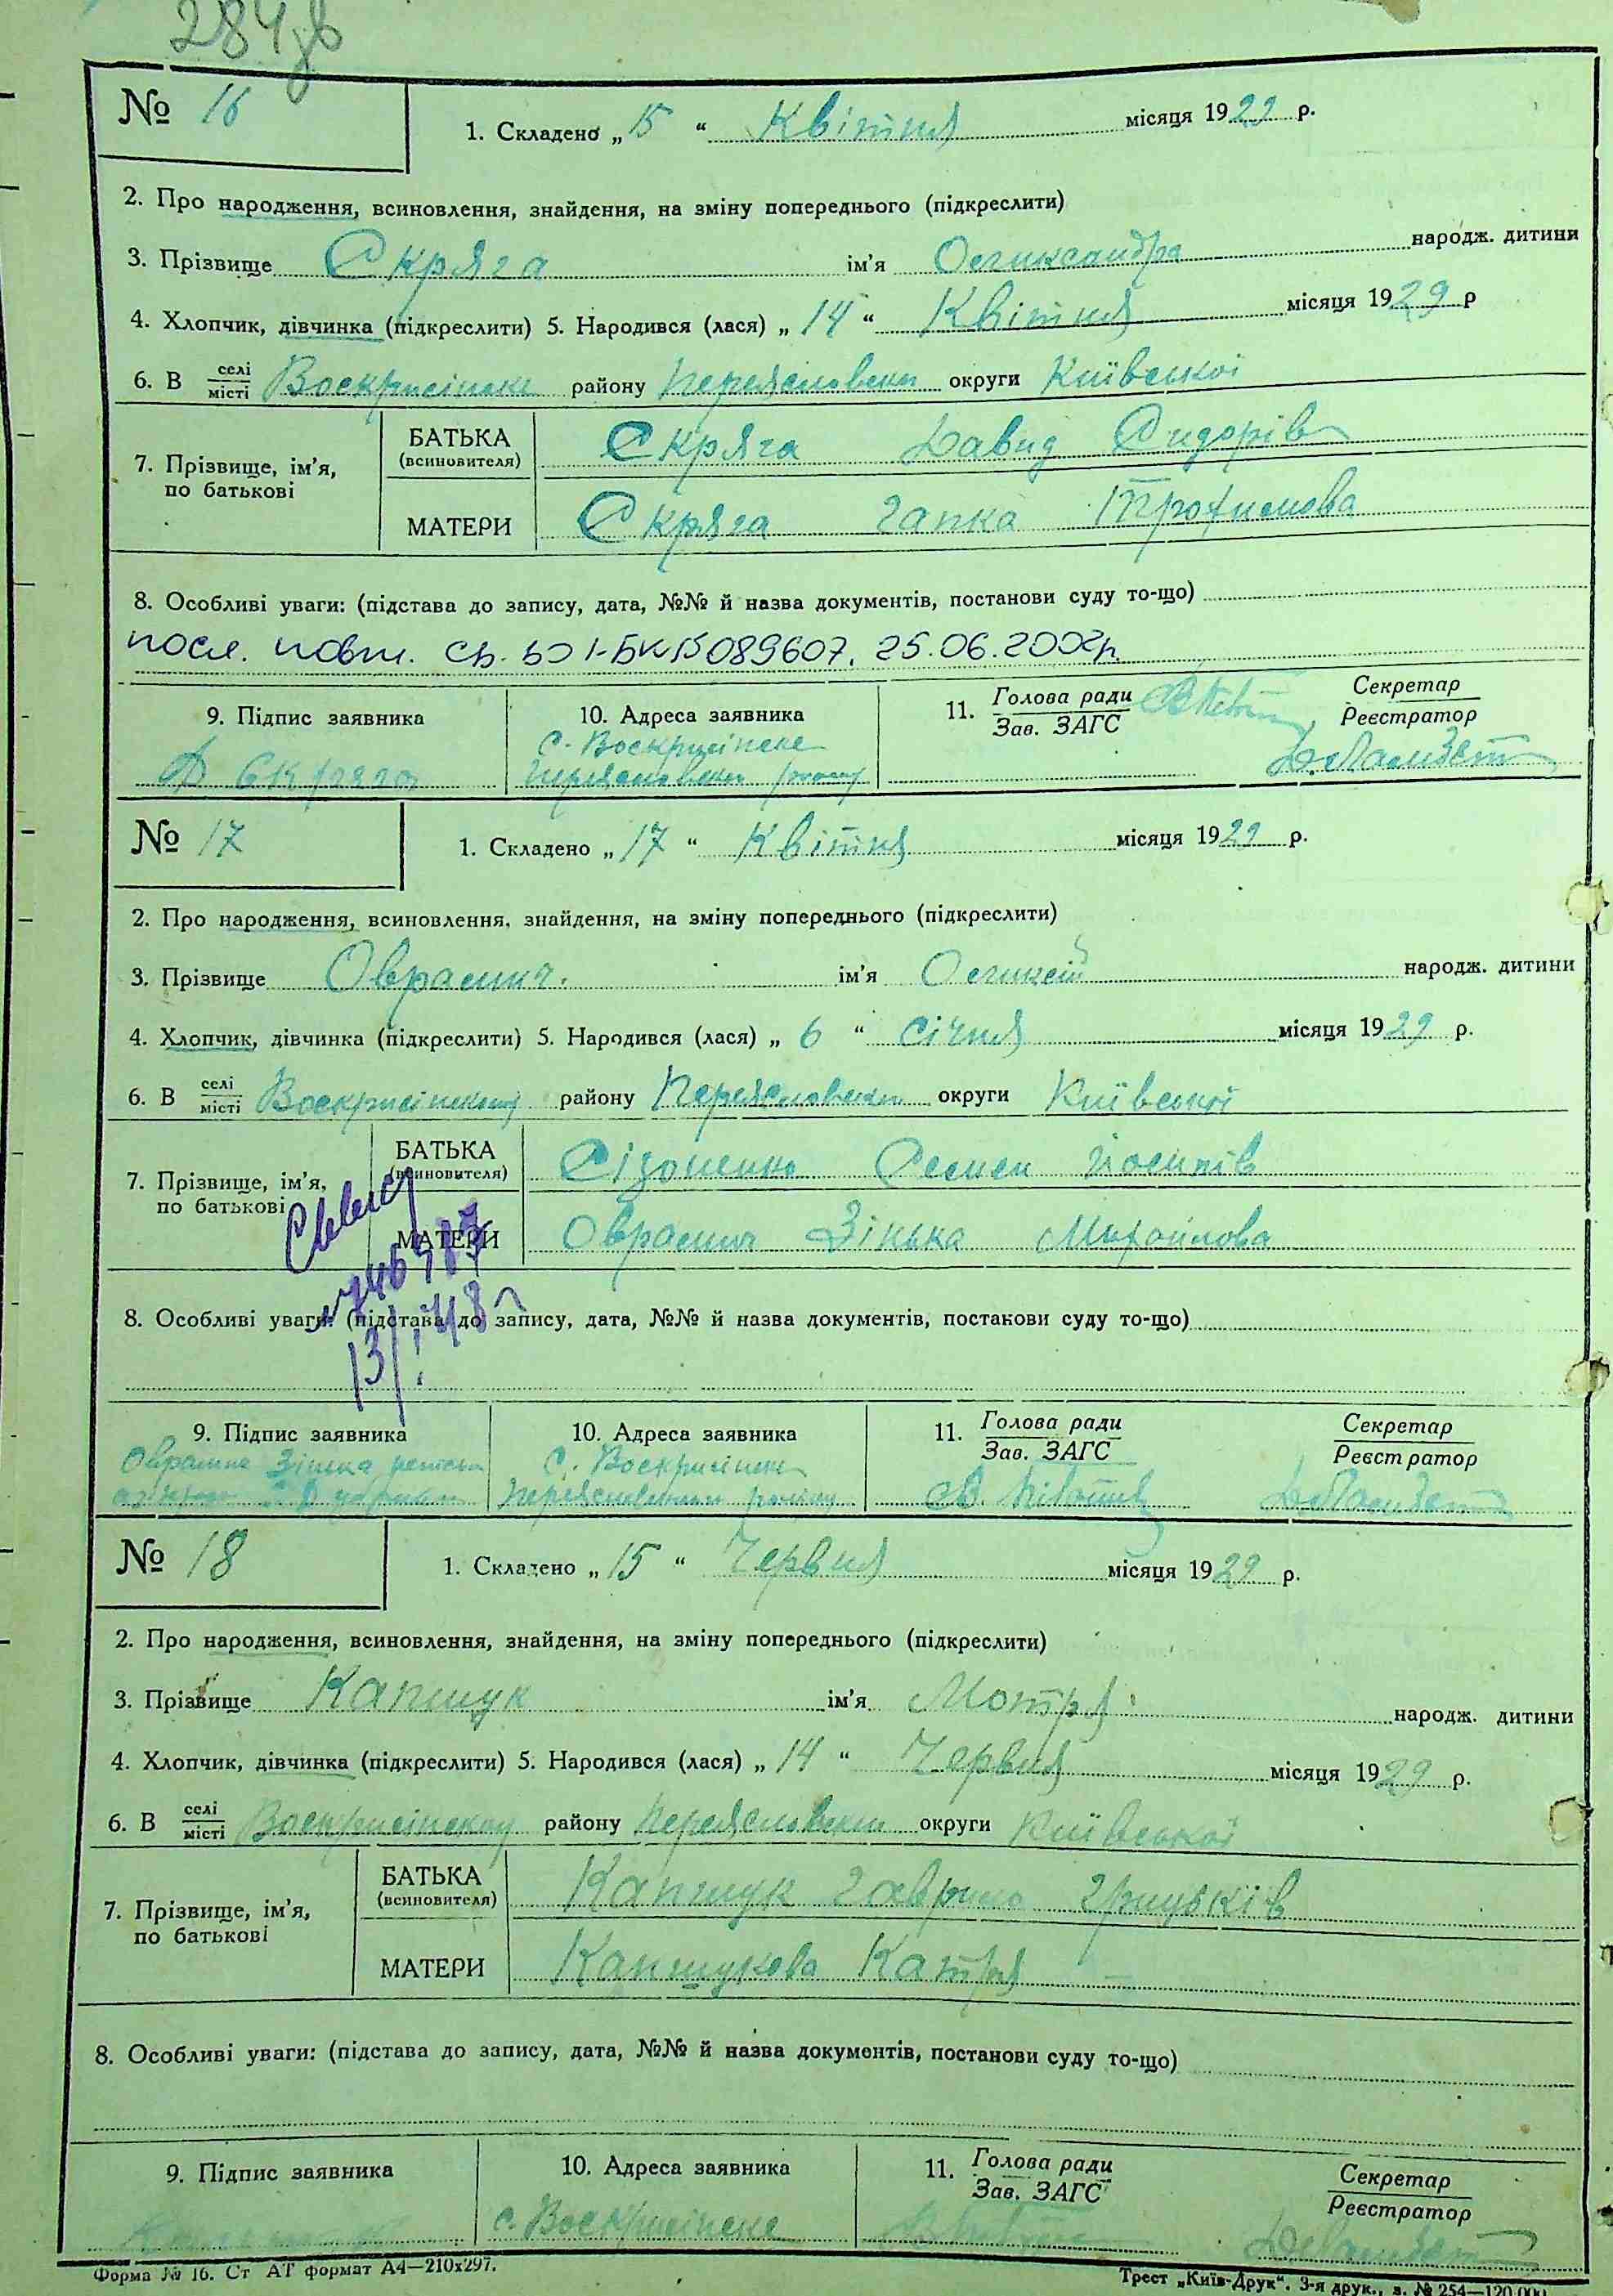 284зв
№ 16
1. Складено „15“ Квітня місяця 1929 р.
2. Про народження, всиновлення, знайдення, на зміну попереднього (підкреслити)
3. Прізвище Скряга ім’я Олександра народж. дитини
4. Хлопчик, дівчинка (підкреслити) 5. Народився (лася) „14“ Квітня місяця 1929 р
6. В селі місті Воскрисінське району Переясловськ округи Київської
7. Прізвище, ім’я, по батькові
БАТЬКА (всиновителя) Скряга Давид Сидорів
МАТЕРИ Скряга Гапка Трохимова
8. Особливі уваги: (підстава до запису, дата, №№ й назва документів, постанови суду то-що)
посл. повт. св. 1-БК 089607. 25.06.2002р.
9. Підпис заявника
Д Скряга
10. Адреса заявника
с. Воскрисінске
Переясловськ району
11. Голова ради
Зав. ЗАГС
Секретар
Реєстратор
№ 17
1. Складено „17“ Квітня місяця 1929 р.
2. Про народження, всиновлення, знайдення, на зміну попереднього (підкреслити)
3. Прізвище Оврамич. ім’я Оликсій народж. дитини
4. Хлопчик, дівчинка (підкреслити) 5. Народився (лася) „6“ Січня місяця 1929 р.
6. В селі місті Воскрисінському району Переясловськ округи Київської
7. Прізвище, ім’я, по батькові
БАТЬКА (всиновителя) Сізоненко Семен Йосипів
МАТЕРИ Оврамич Зінька Михайлова
8. Особливі уваги: (підстава до запису, дата, №№ й назва документів, постакови суду то-що)
9. Підпис заявника
10. Адреса заявника
с. Воскрисінске
Переясловськ району
11. Голова ради
Зав. ЗАГС
Секретар
Реєстратор
№ 18
1. Складено „15“ Червня місяця 1929 р.
2. Про народження, всиновлення, знайдення, на зміну попереднього (підкреслити)
3. Прізвище Капшук ім’я Мотря народж. дитини
4. Хлопчик, дівчинка (підкреслити) 5. Народився (лася) „14“ Червня місяця 1929 р.
6. В селі місті Воскрисінському району Переясловськ округи Київської
7. Прізвище, ім’я, по батькові
БАТЬКА (всиновителя) Капшук Гаврило
МАТЕРИ Капшукова Катря
8. Особливі уваги: (підстава до запису, дата, №№ й назва документів, постанови суду то-що)
9. Підпис заявника
10. Адреса заявника
с. Воскрисінске
11. Голова ради
Зав. ЗАГС
Секретар
Реєстратор
Форма № 16. Ст АТ формат А4—210х297.
Трест „Київ-Друк“. 3-я друк., з. № 254—120.000